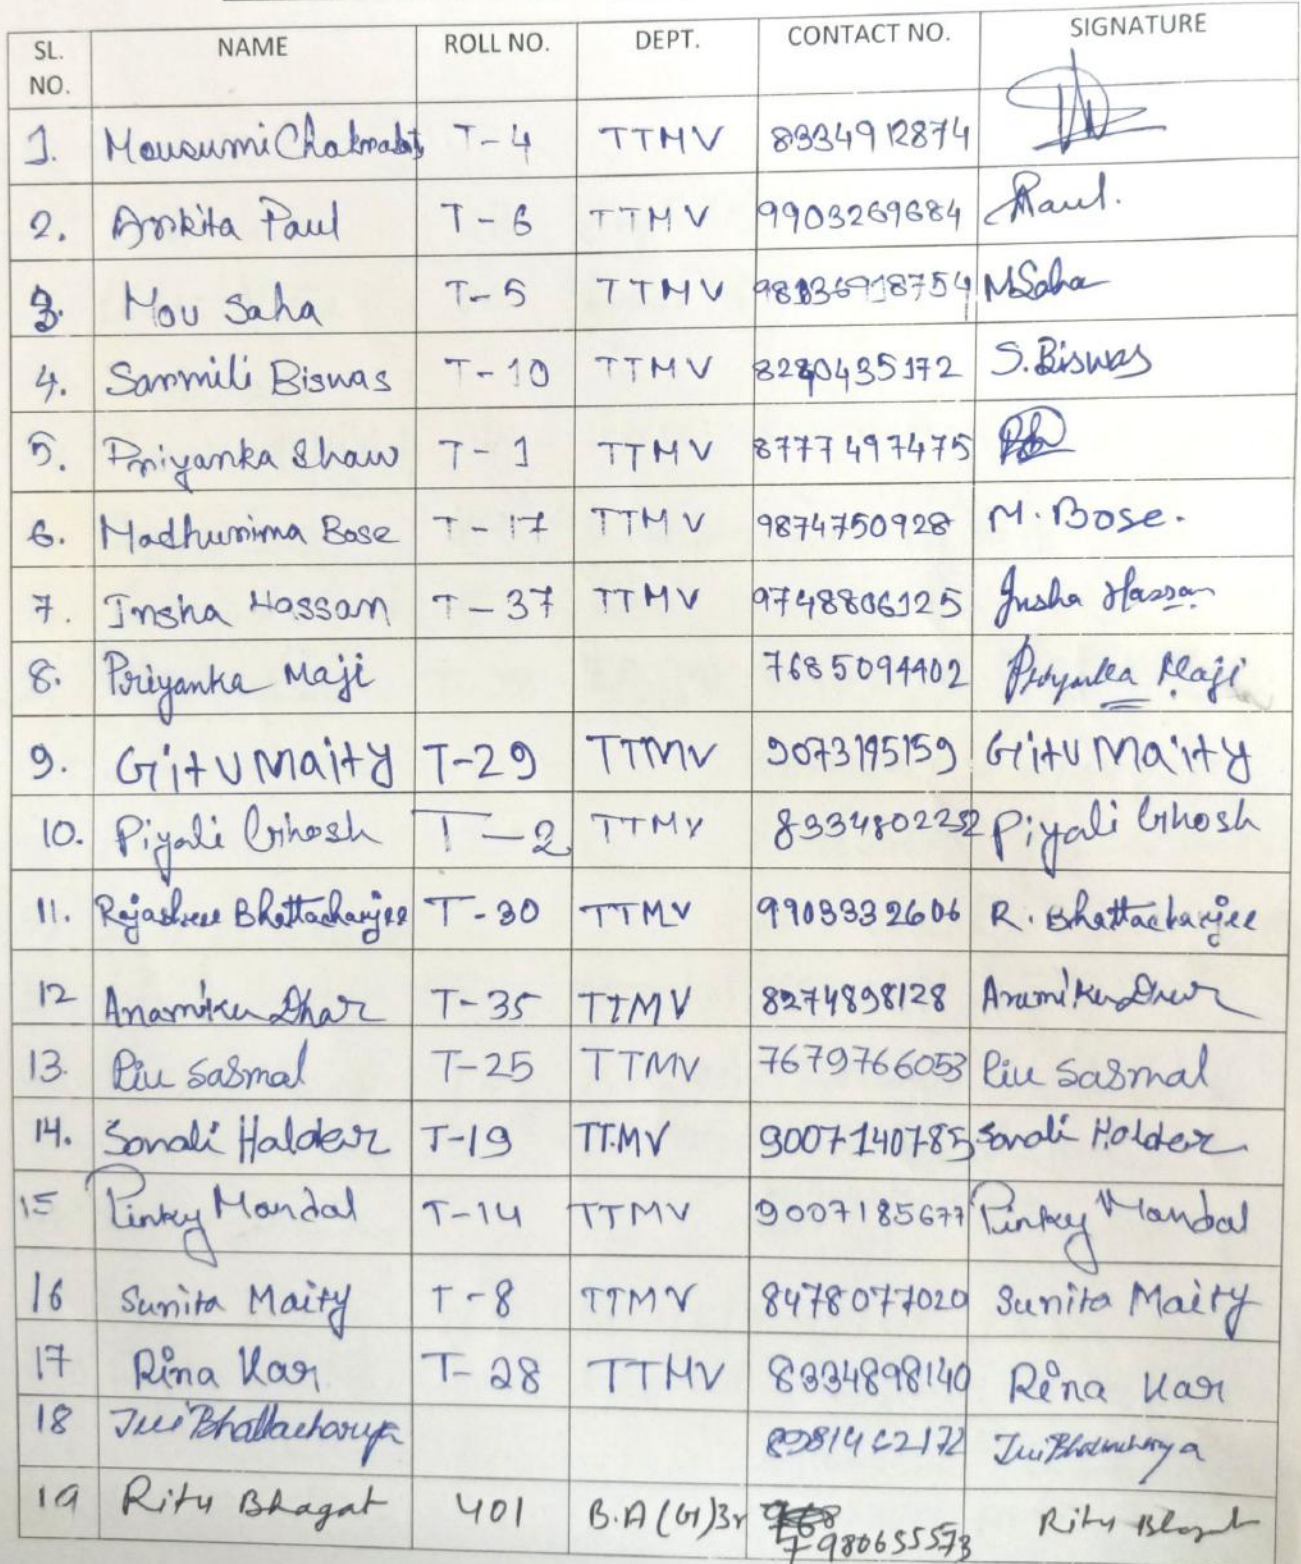 SL. NO. NAME ROLL NO. DEPT. CONTACT NO. SIGNATURE
1. Mousumi Chakrabarty T-4 TTMV 8334912874
2. Ankita Paul T-6 TTMV 9903269684 APaul.
3. Mou Saha T-5 TTMV MSaha
4. Sanmili Biswas T-10 TTMV 8280435172 S.Biswas
5. Priyanka Shaw T-1 TTMV 8777497475
6. Madhurima Bose T-17 TTMV 9874750928 M. Bose.
7. Insha Hassan T-37 TTMV 9748806125 Insha Hassan
8. Priyanka Maji 7685094402 Priyanka Maji
9. Gitu Maity T-29 TTMV 9073195159 Gitu Maity
10. Piyali Ghosh T-2 TTMV 8334802232 Piyali Ghosh
11. Rajashree Bhattacharjee T-30 TTMV 9903332606 R. Bhattacharjee
12 Anamika Dhar T-35 TTMV 8274898128 Anamika Dhar
13. Piu Sasmal T-25 TTMV 7679766053 Piu Sasmal
14. Sonali Halder T-19 TT.MV 9007140785 Sonali Holder
15 Pinky Mondal T-14 TTMV 9007185677 Pinky Mondal
16 Sunita Maity T-8 TTMV 8478077020 Sunita Maity
17 Rina Kar T-28 TTMV 8334898140 Rina Kar
18 Jui Bhattacharya Jui Bhattacharya
19 Ritu Bhagat 401 B.A (G)3r 7980655573 Ritu Bhagat